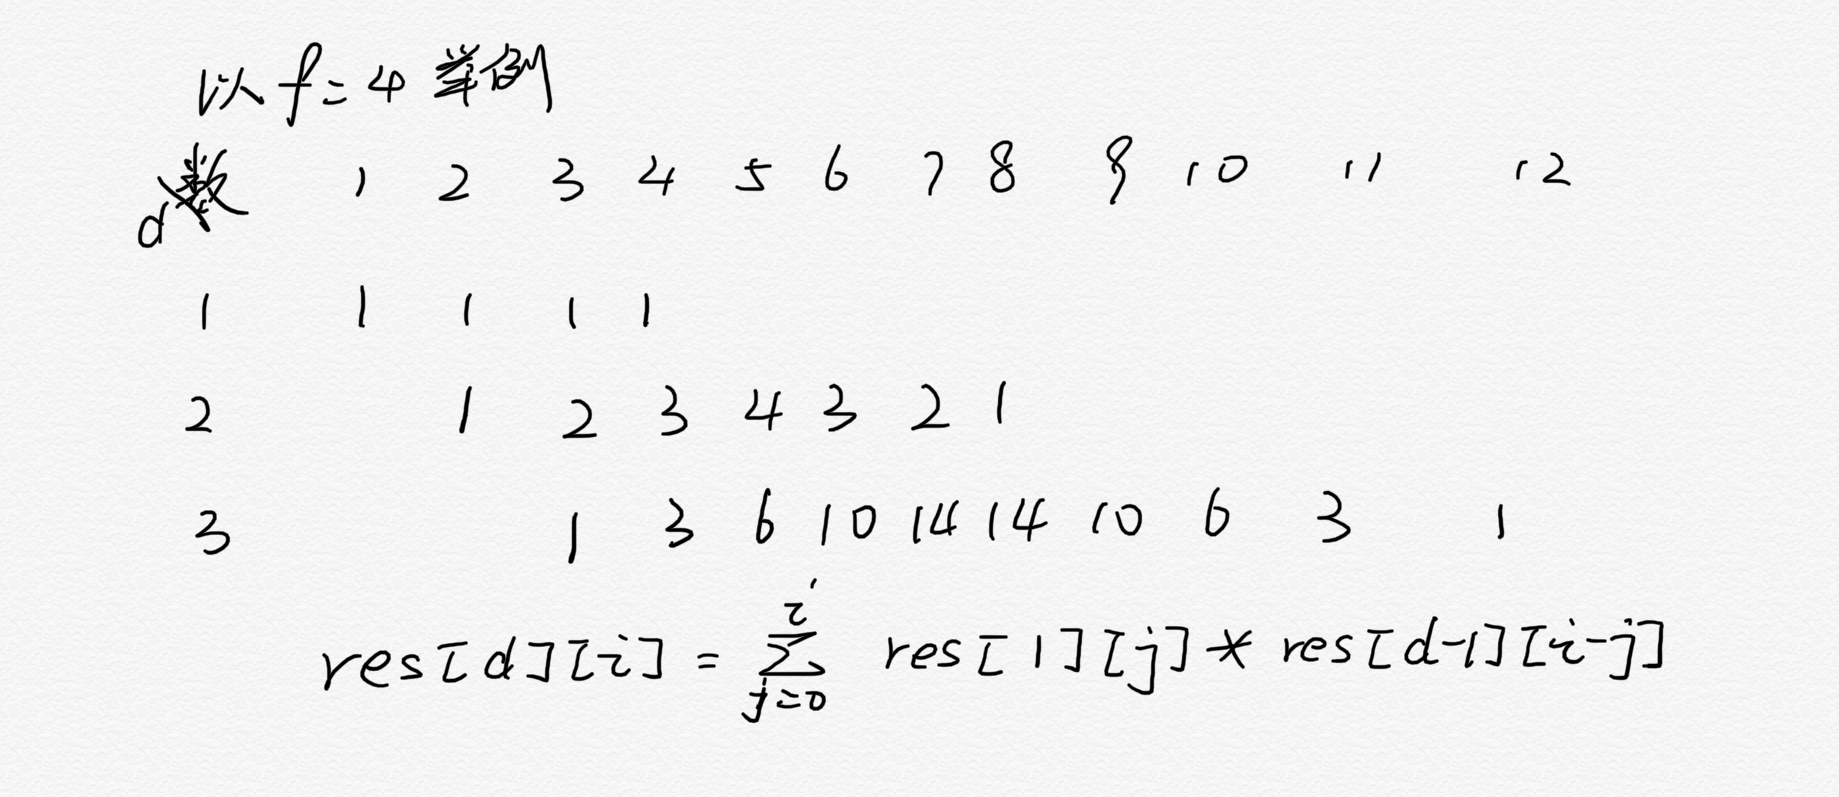 以 f = 4 举例
数 1 2 3 4 5 6 7 8 9 10 11 12
d
1 1 1 1 1
2 1 2 3 4 3 2 1
3 1 3 6 10 14 14 10 6 3 1
res[d][i] = ∑_{j=0}^{i} res[1][j] * res[d-1][i-j]